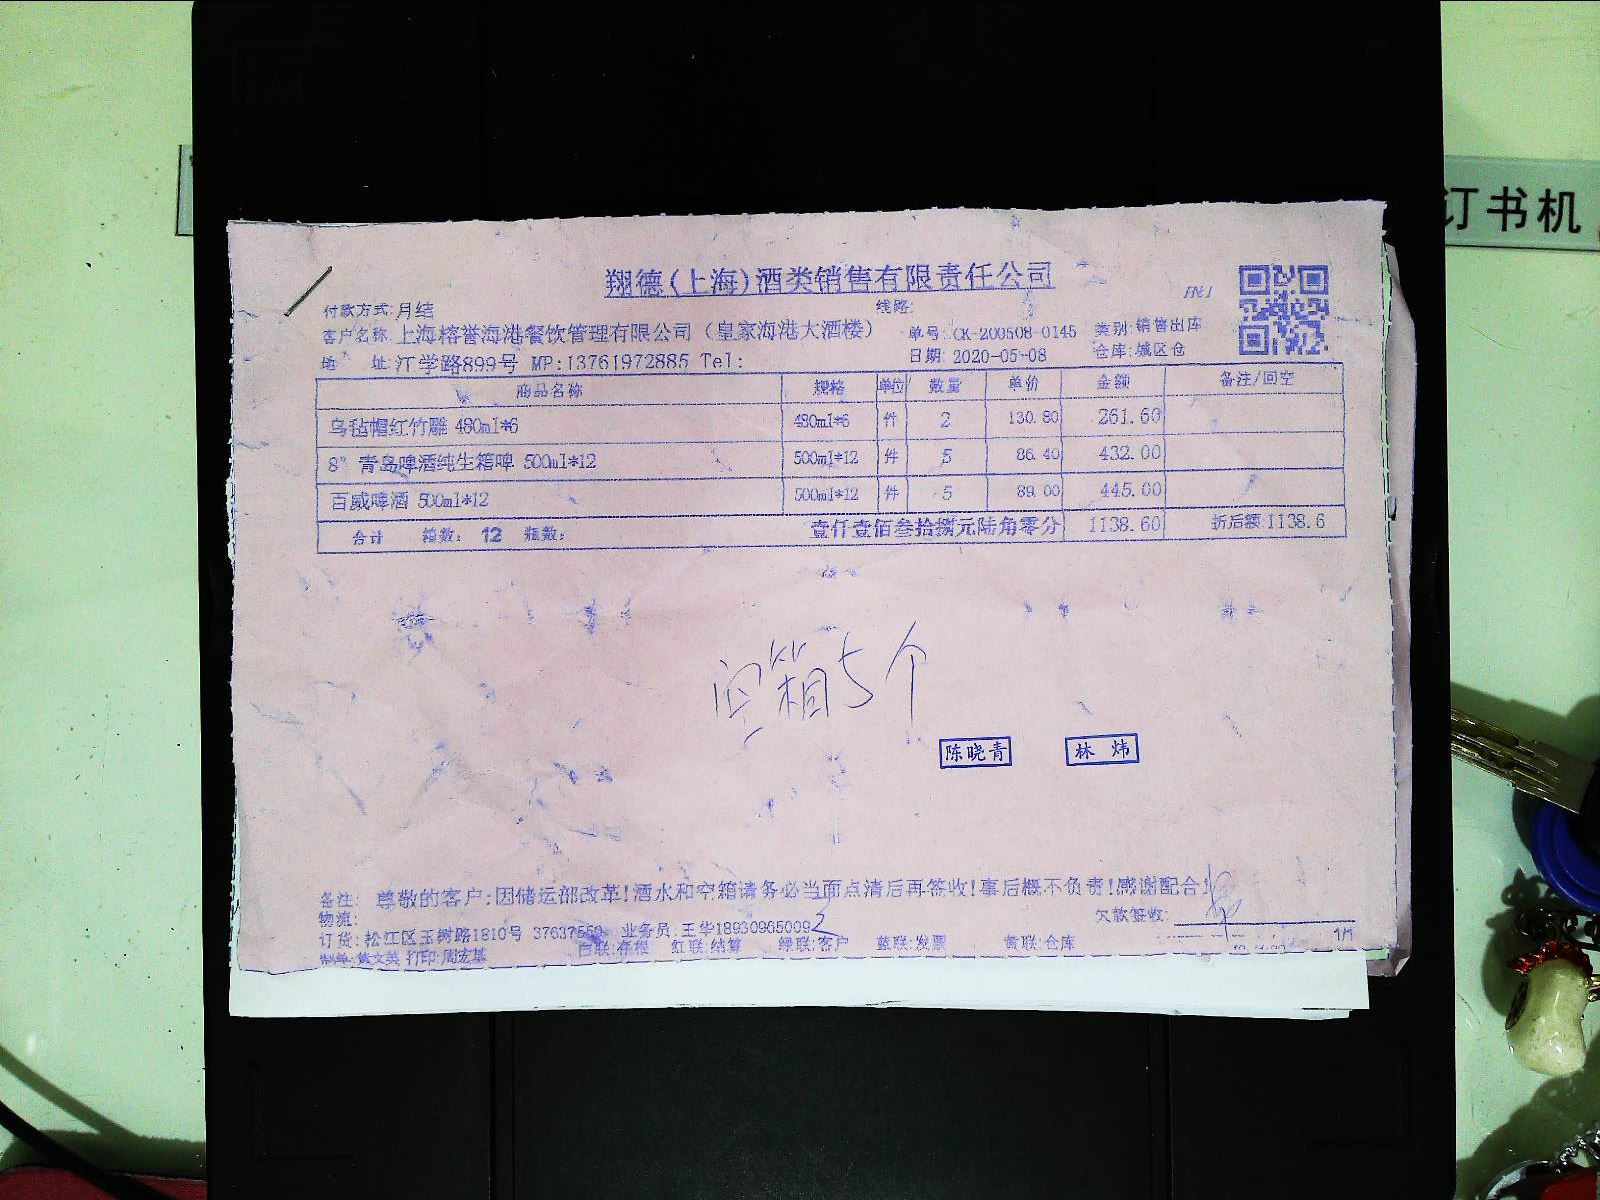 订书机
翔德(上海)酒类销售有限责任公司
付款方式:月结 线路:
客户名称:上海榕誉海港餐饮管理有限公司（皇家海港大酒楼） 单号:CK-200508-0145 类别:销售出库
地 址:江学路899号 MP:13761972885 Tel: 日期:2020-05-08 仓库:城区仓
商品名称 规格 单位 数量 单价 金额 备注/回空
乌毡帽红竹雕 480ml*6 480ml*6 件 2 130.80 261.60
8°青岛啤酒纯生箱啤 500ml*12 500ml*12 件 5 86.40 432.00
百威啤酒 500ml*12 500ml*12 件 5 89.00 445.00
合计 箱数: 12 瓶数: 壹仟壹佰叁拾捌元陆角零分 1138.60 折后额:1138.6
空箱5个
陈晓青 林炜
备注: 尊敬的客户:因储运部改革!酒水和空箱请务必当面点清后再签收!事后概不负责!感谢配合!
物流: 欠款签收:
订货:松江区玉树路1810号 37637550 业务员:王华18930965009 1/1
制单:黄文英 打印:周宏基 白联:存根 红联:结算 绿联:客户 蓝联:发票 黄联:仓库